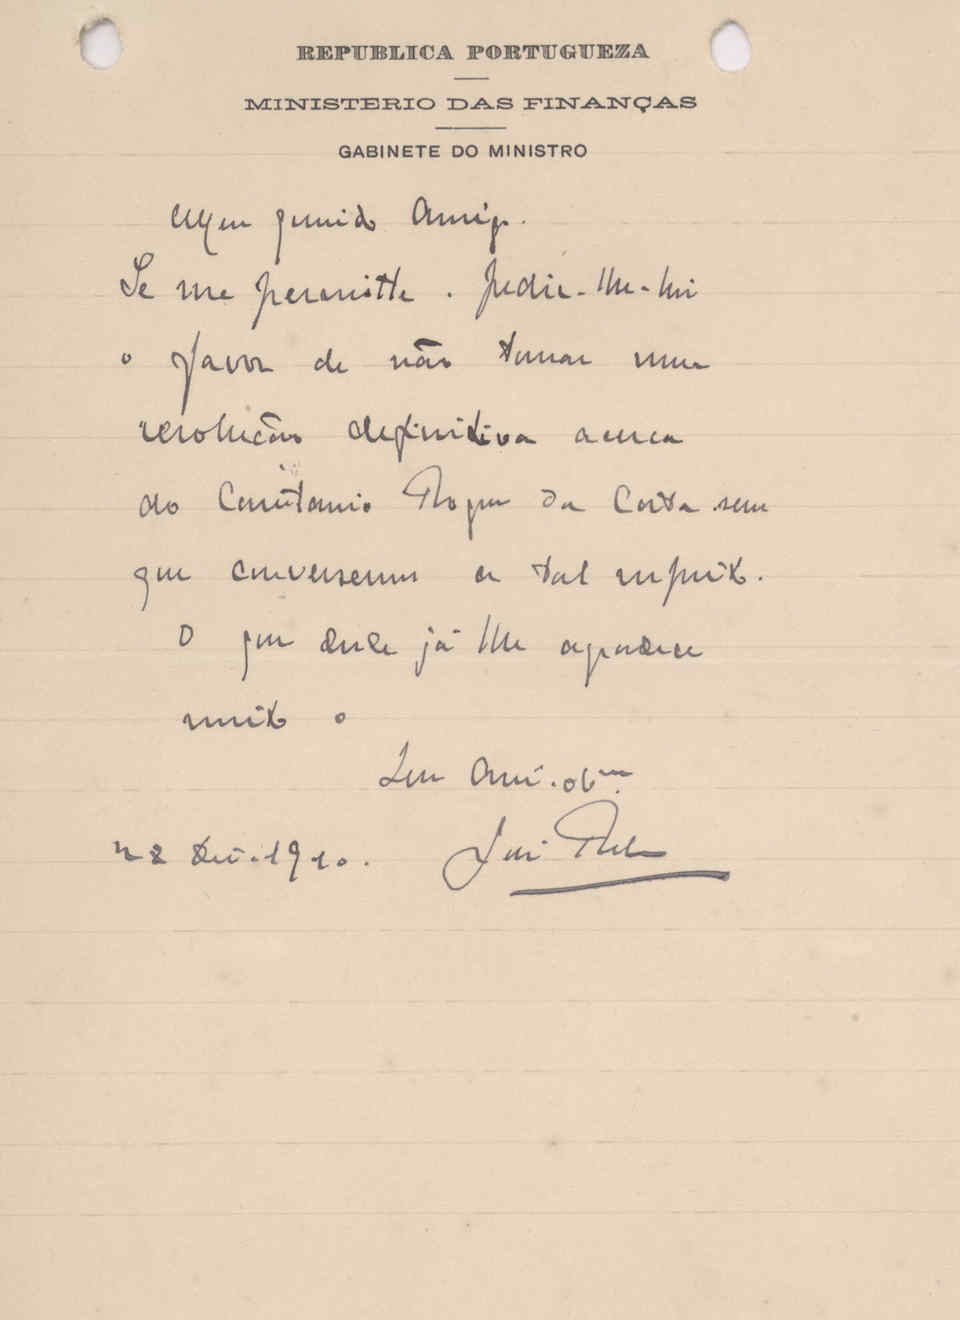 REPUBLICA PORTUGUEZA
MINISTERIO DAS FINANÇAS
GABINETE DO MINISTRO
Meu querido Amigo.
Se me permitte. pedir-lhe-hei
o favor de não tomar uma
resolução definitiva acerca
do Constancio Roque da Costa sem
que conversemos a tal respeito.
O que desde já lhe agradece
muito o
Seu Am.º ob.mo
22 Dez. 1910. José Relvas